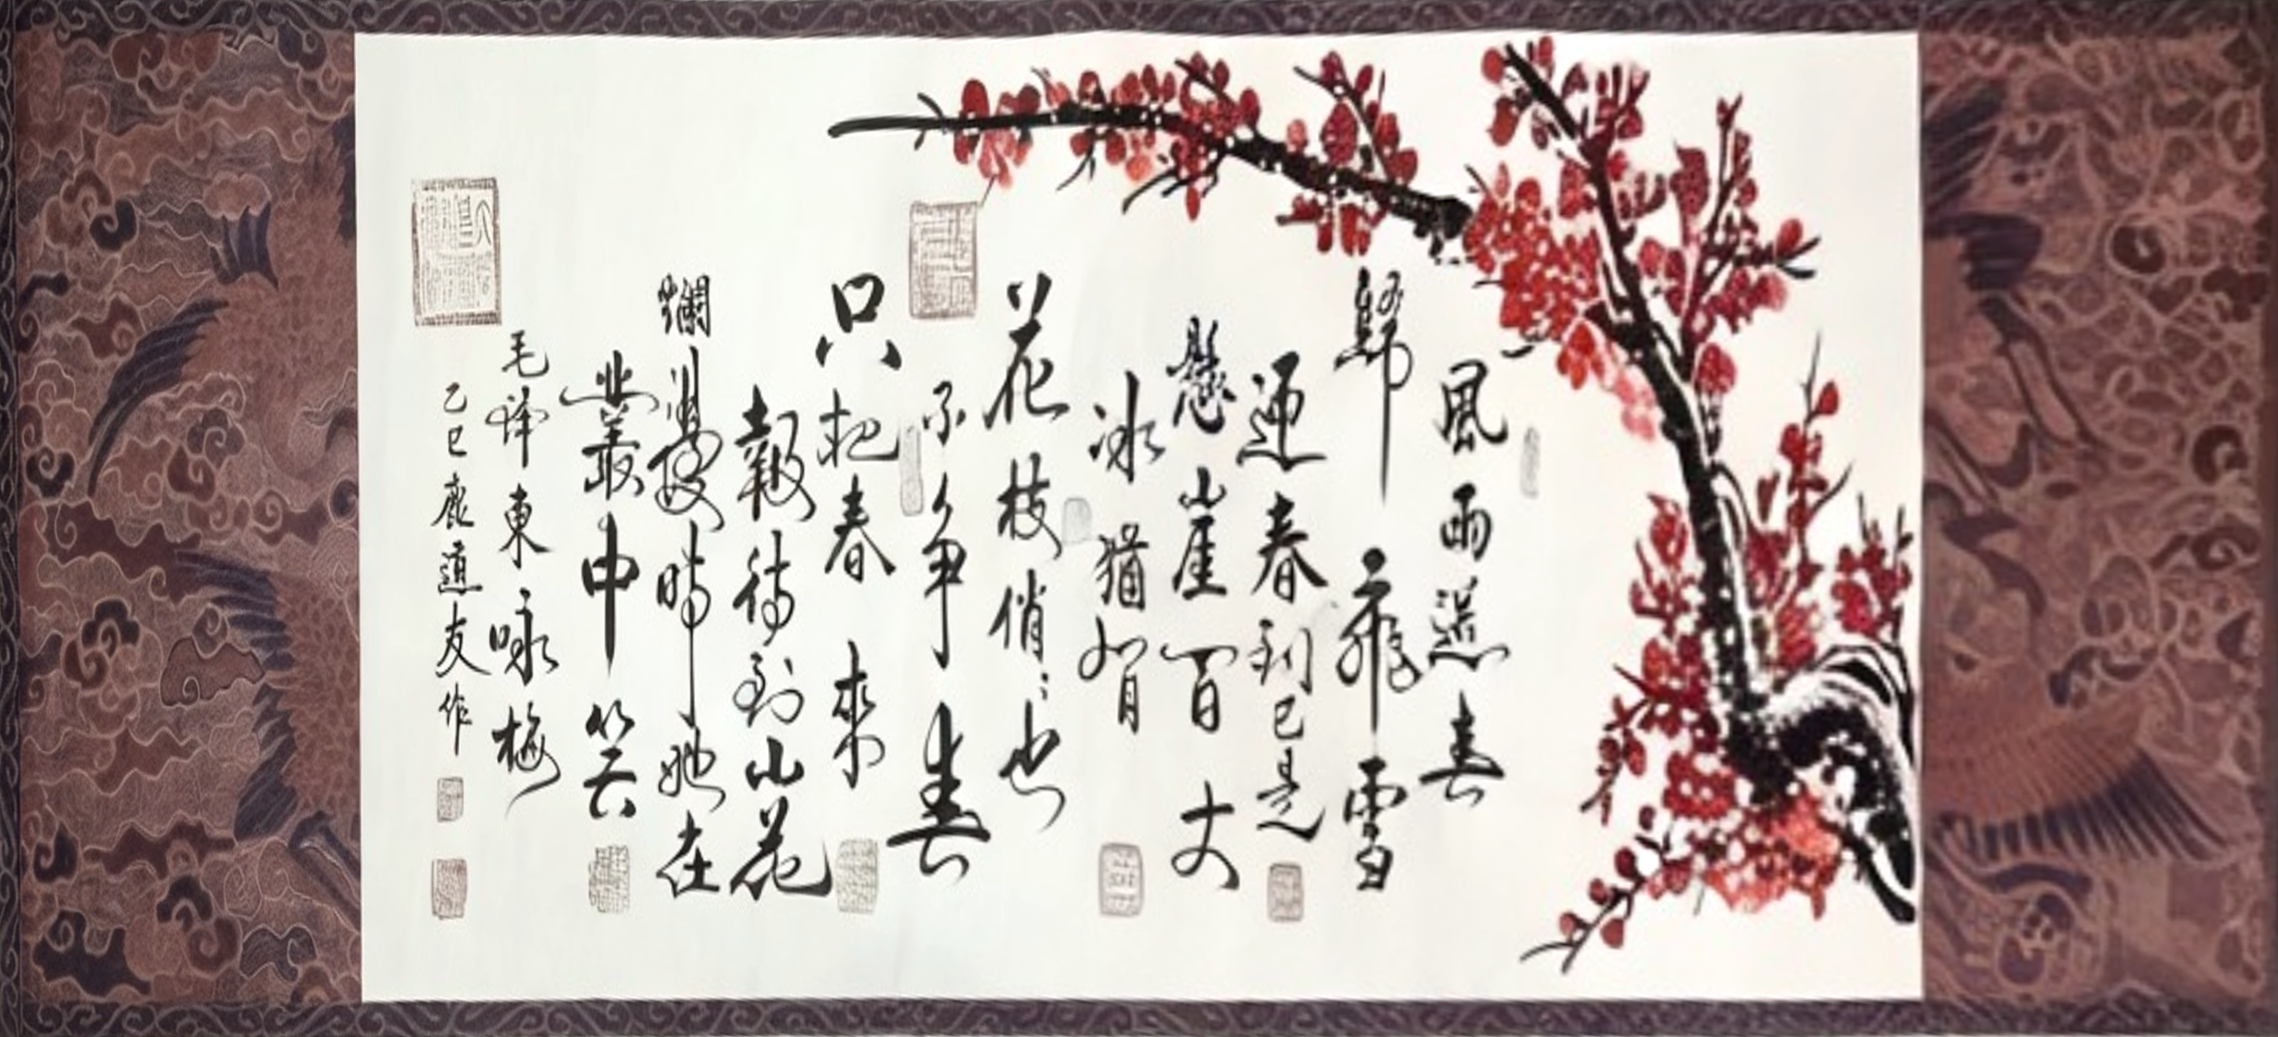 風雨送春
歸飛雪
迎春到已是
懸崖百丈
冰猶有
花枝俏〻也
不争春
只把春來
報待到山花
爛漫時她在
叢中笑
毛泽東咏梅
乙巳友作